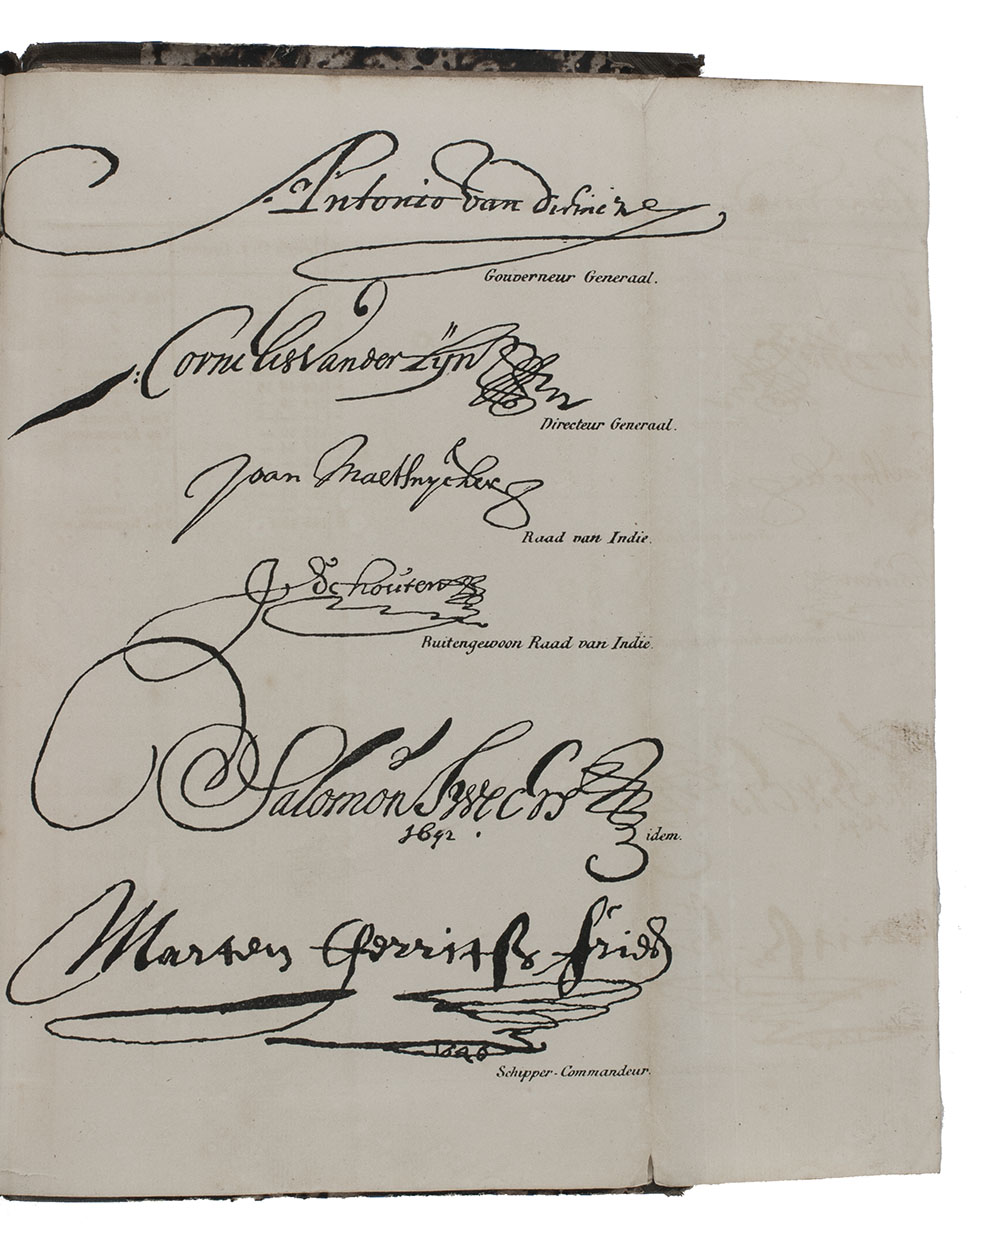 Antonio van Diemen
Gouverneur Generaal.
Cornelis van der Lijn
Directeur Generaal.
Joan Maetsuycker
Raad van Indie.
J Schouten
Buitengewoon Raad van Indië.
Salomon Sweers
1642.
idem.
Marten Gerritsz Fries
1646
Schipper-Commandeur.